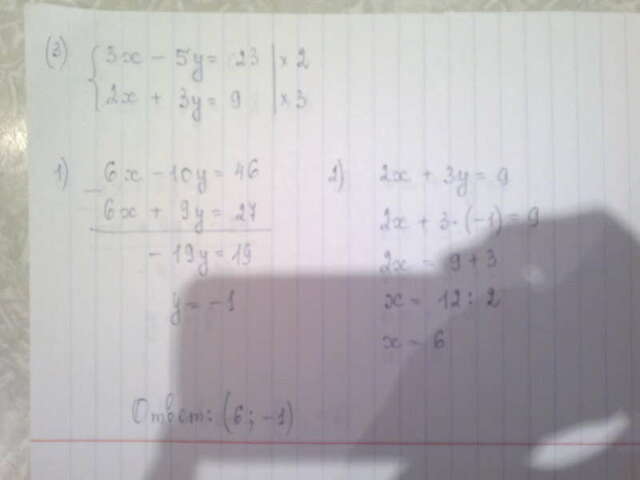 (3) { 3x - 5y = 23 | × 2
2x + 3y = 9 | × 3
1) - 6x - 10y = 46
6x + 9y = 27
- 19y = 19
y = -1
2) 2x + 3y = 9
2x + 3·(-1) = 9
2x = 9 + 3
x = 12 : 2
x = 6
Ответ: (6; -1)